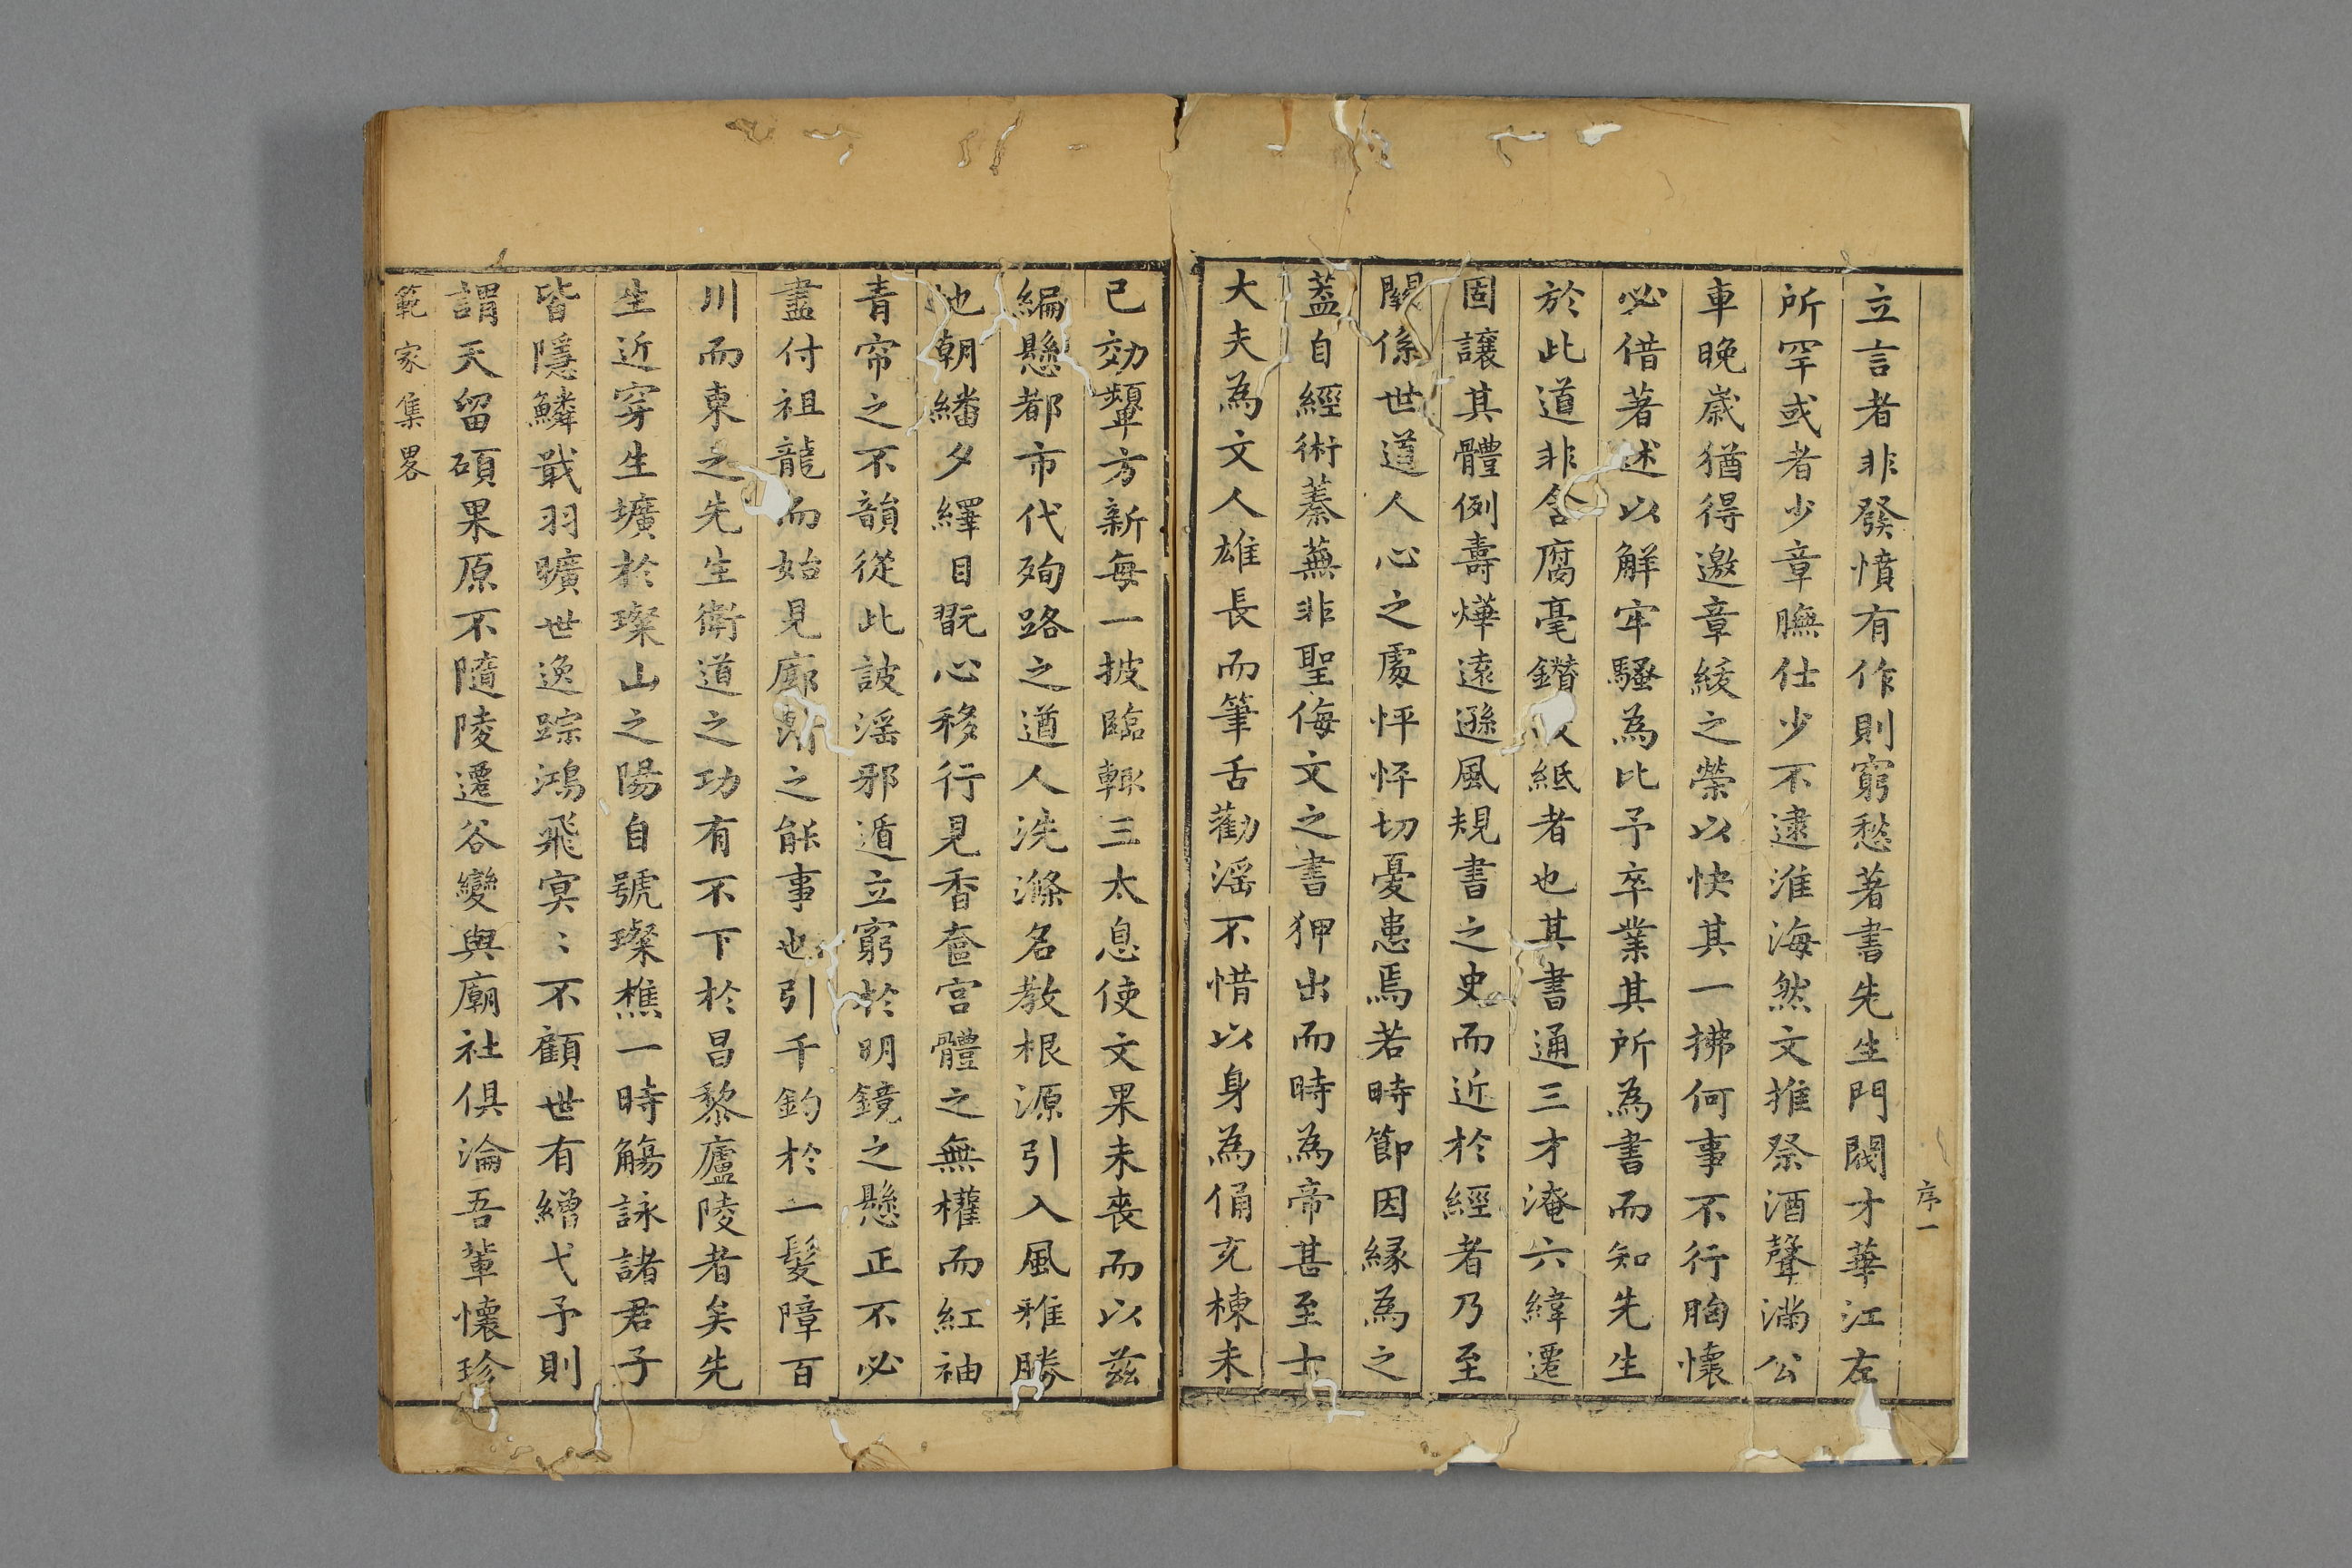 序一
立言者非發憤有作則窮愁著書先生門閥才華江左
所罕或者少章膴仕少不逮淮海然文推祭酒聲滿公
車晚歲猶得邀章綬之榮以快其一拂何事不行胸懷
必借著述以解牢騷為比予卒業其所為書而知先生
於此道非含腐毫鑽紙者也其書通三才淹六緯遷
固讓其體例壽燁遠遜風規書之史而近於經者乃至
關係世道人心之處怦怦切憂患焉若時節因緣為之
蓋自經術蓁蕪非聖侮文之書狎出而時為帝甚至士
大夫為文人雄長而筆舌勸滛不惜以身為俑充棟未
已効顰方新每一披臨輒三太息使文果未喪而以茲
編懸都市代殉路之遒人洗滌名教根源引入風雅勝
地朝繙夕繹目翫心移行見香奩宮體之無權而紅袖
青帘之不韻從此詖滛邪遁立窮於明鏡之懸正不必
盡付祖龍而始見廓之能事也引千鈞於一髮障百
川而東之先生衛道之功有不下於昌黎廬陵者矣先
生近穿生壙於璨山之陽自號璨樵一時觴詠諸君子
皆隱鱗戢羽曠世逸踪鴻飛冥〻不顧世有繒弋予則
謂天留碩果原不隨陵遷谷變與廟社俱淪吾輩懷珍
範家集畧